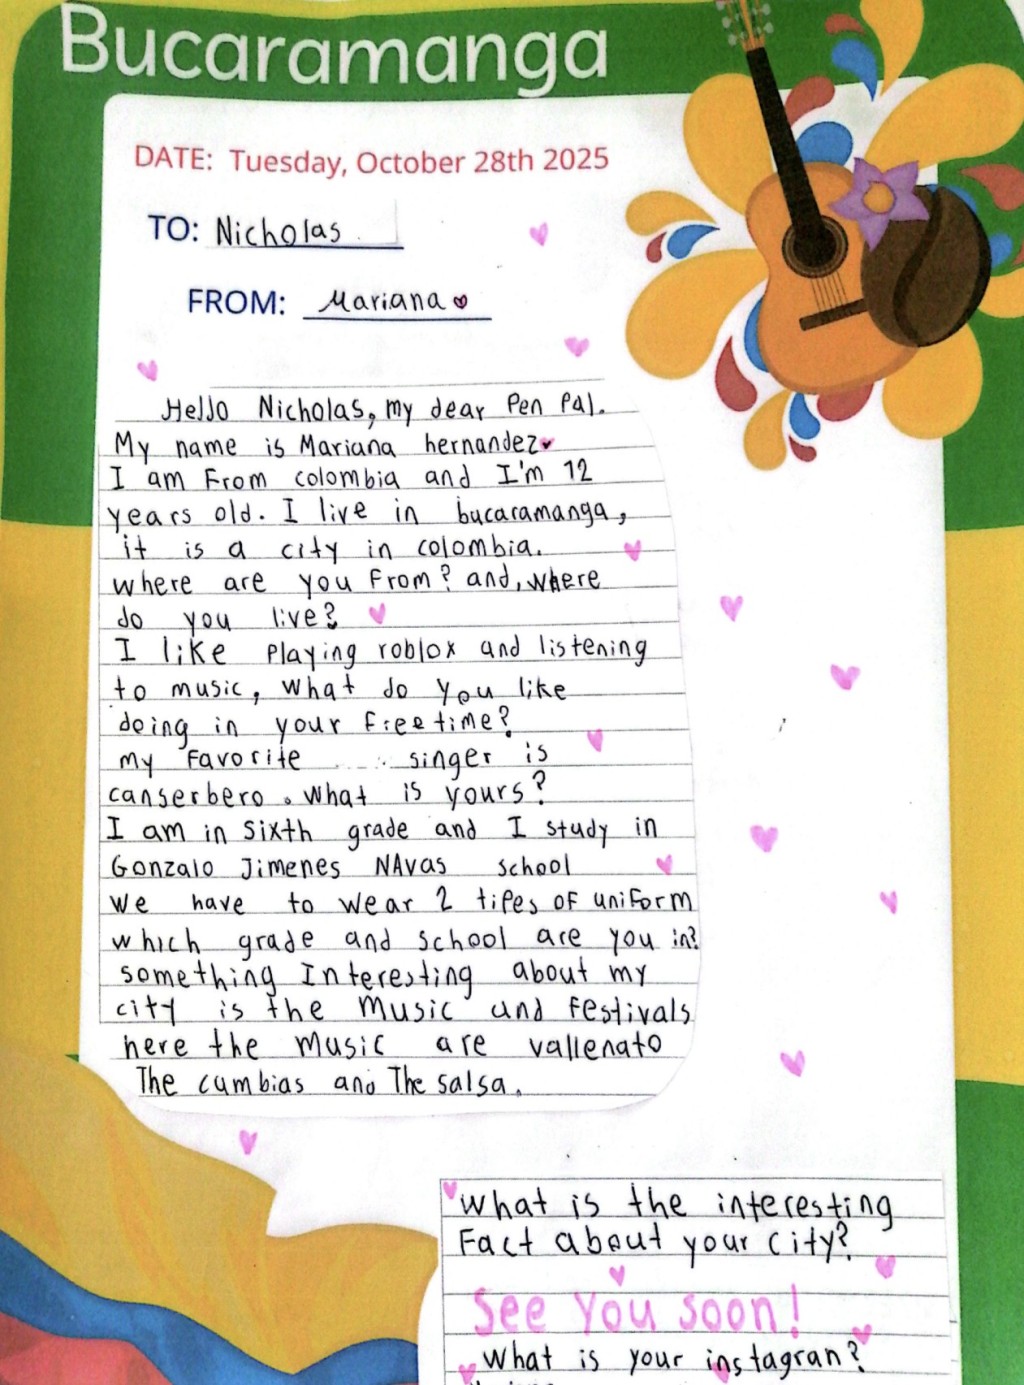 Bucaramanga
DATE: Tuesday, October 28th 2025
TO: Nicholas
FROM: Mariana
Hello Nicholas, my dear Pen Pal.
My name is Mariana hernandez
I am From colombia and I'm 12
years old. I live in bucaramanga,
it is a city in colombia.
where are you From? and, where
do you live?
I like Playing roblox and listening
to music, what do you like
doing in your free time?
my Favorite singer is
canserbero. what is yours?
I am in sixth grade and I study in
Gonzalo Jimenes NAvas school
we have to wear 2 tipes of uniform
which grade and school are you in?
something Interesting about my
city is the music and festivals
here the music are vallenato
The cumbias and The salsa.
what is the interesting
Fact about your city?
See You soon!
what is your instagran?